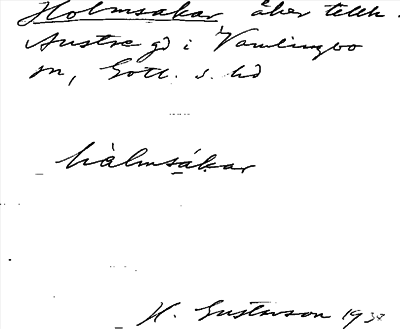 Holmsakar åker tillh.
Austre gd i Vamlingbo
sn, Gotl. s. hd
hàlmsákar
H. Gustavson 1938